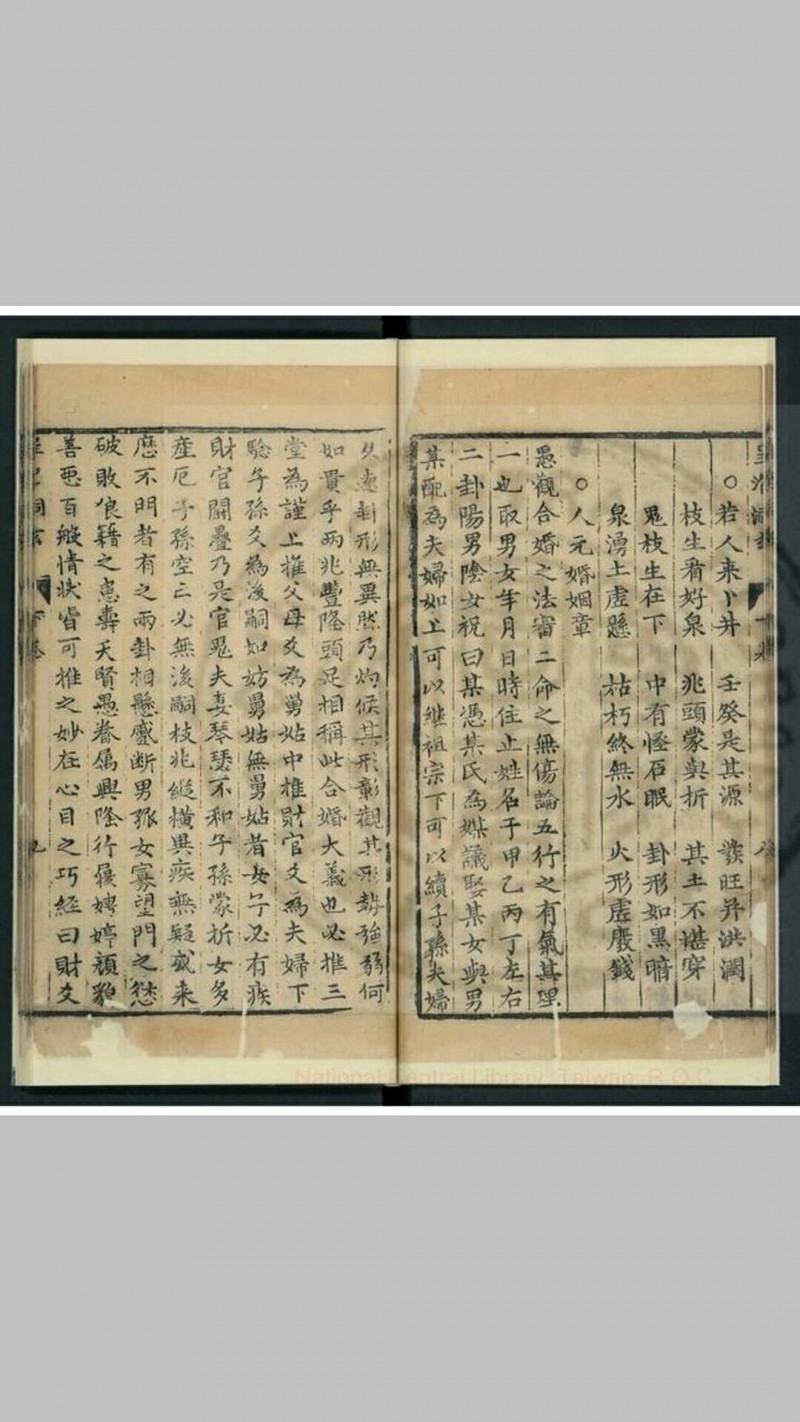 ○若人来卜井　壬癸是其源　發旺并洪澗
枝生看好泉　兆頭蒙與折　其土不堪穿
鬼枝生在下　中有怪石眠　卦形如黑暗
泉湧土虛懸　枯朽終無水　火形虛廢錢
○人元婚姻章
愚觀合婚之法審二命之無傷論五行之有氣其理
一也取男女年月日時住止姓名于甲乙丙丁左右
二卦陽男陰女祝曰某憑某氏為媒議娶某女與男
某配為夫婦如上可以継祖宗下可以續子孫夫婦
卦形無異然乃灼候其形彰觀其形勢強弱何
如貴乎兩兆豐隆頭足相稱此合婚大義也必推三
堂為謹上推父母爻為舅姑中推財官爻為夫婦下
驗子孫爻為後嗣如妨舅姑無舅姑者女子必有疾
財官關疊乃是官鬼夫妻琴瑟不和子孫蒙折女多
產厄子孫空亡必無後嗣枝兆縱橫異疾無疑或来
歷不明者有之兩卦相懸處断男孤女寡望門之愁
破敗狼籍之患壽夭賢愚眷属興隆行履娉婷顔貌
善恶百般情状皆可推之妙在心目之巧經曰財爻
九
National Central Library, Taiwan, R.O.C.